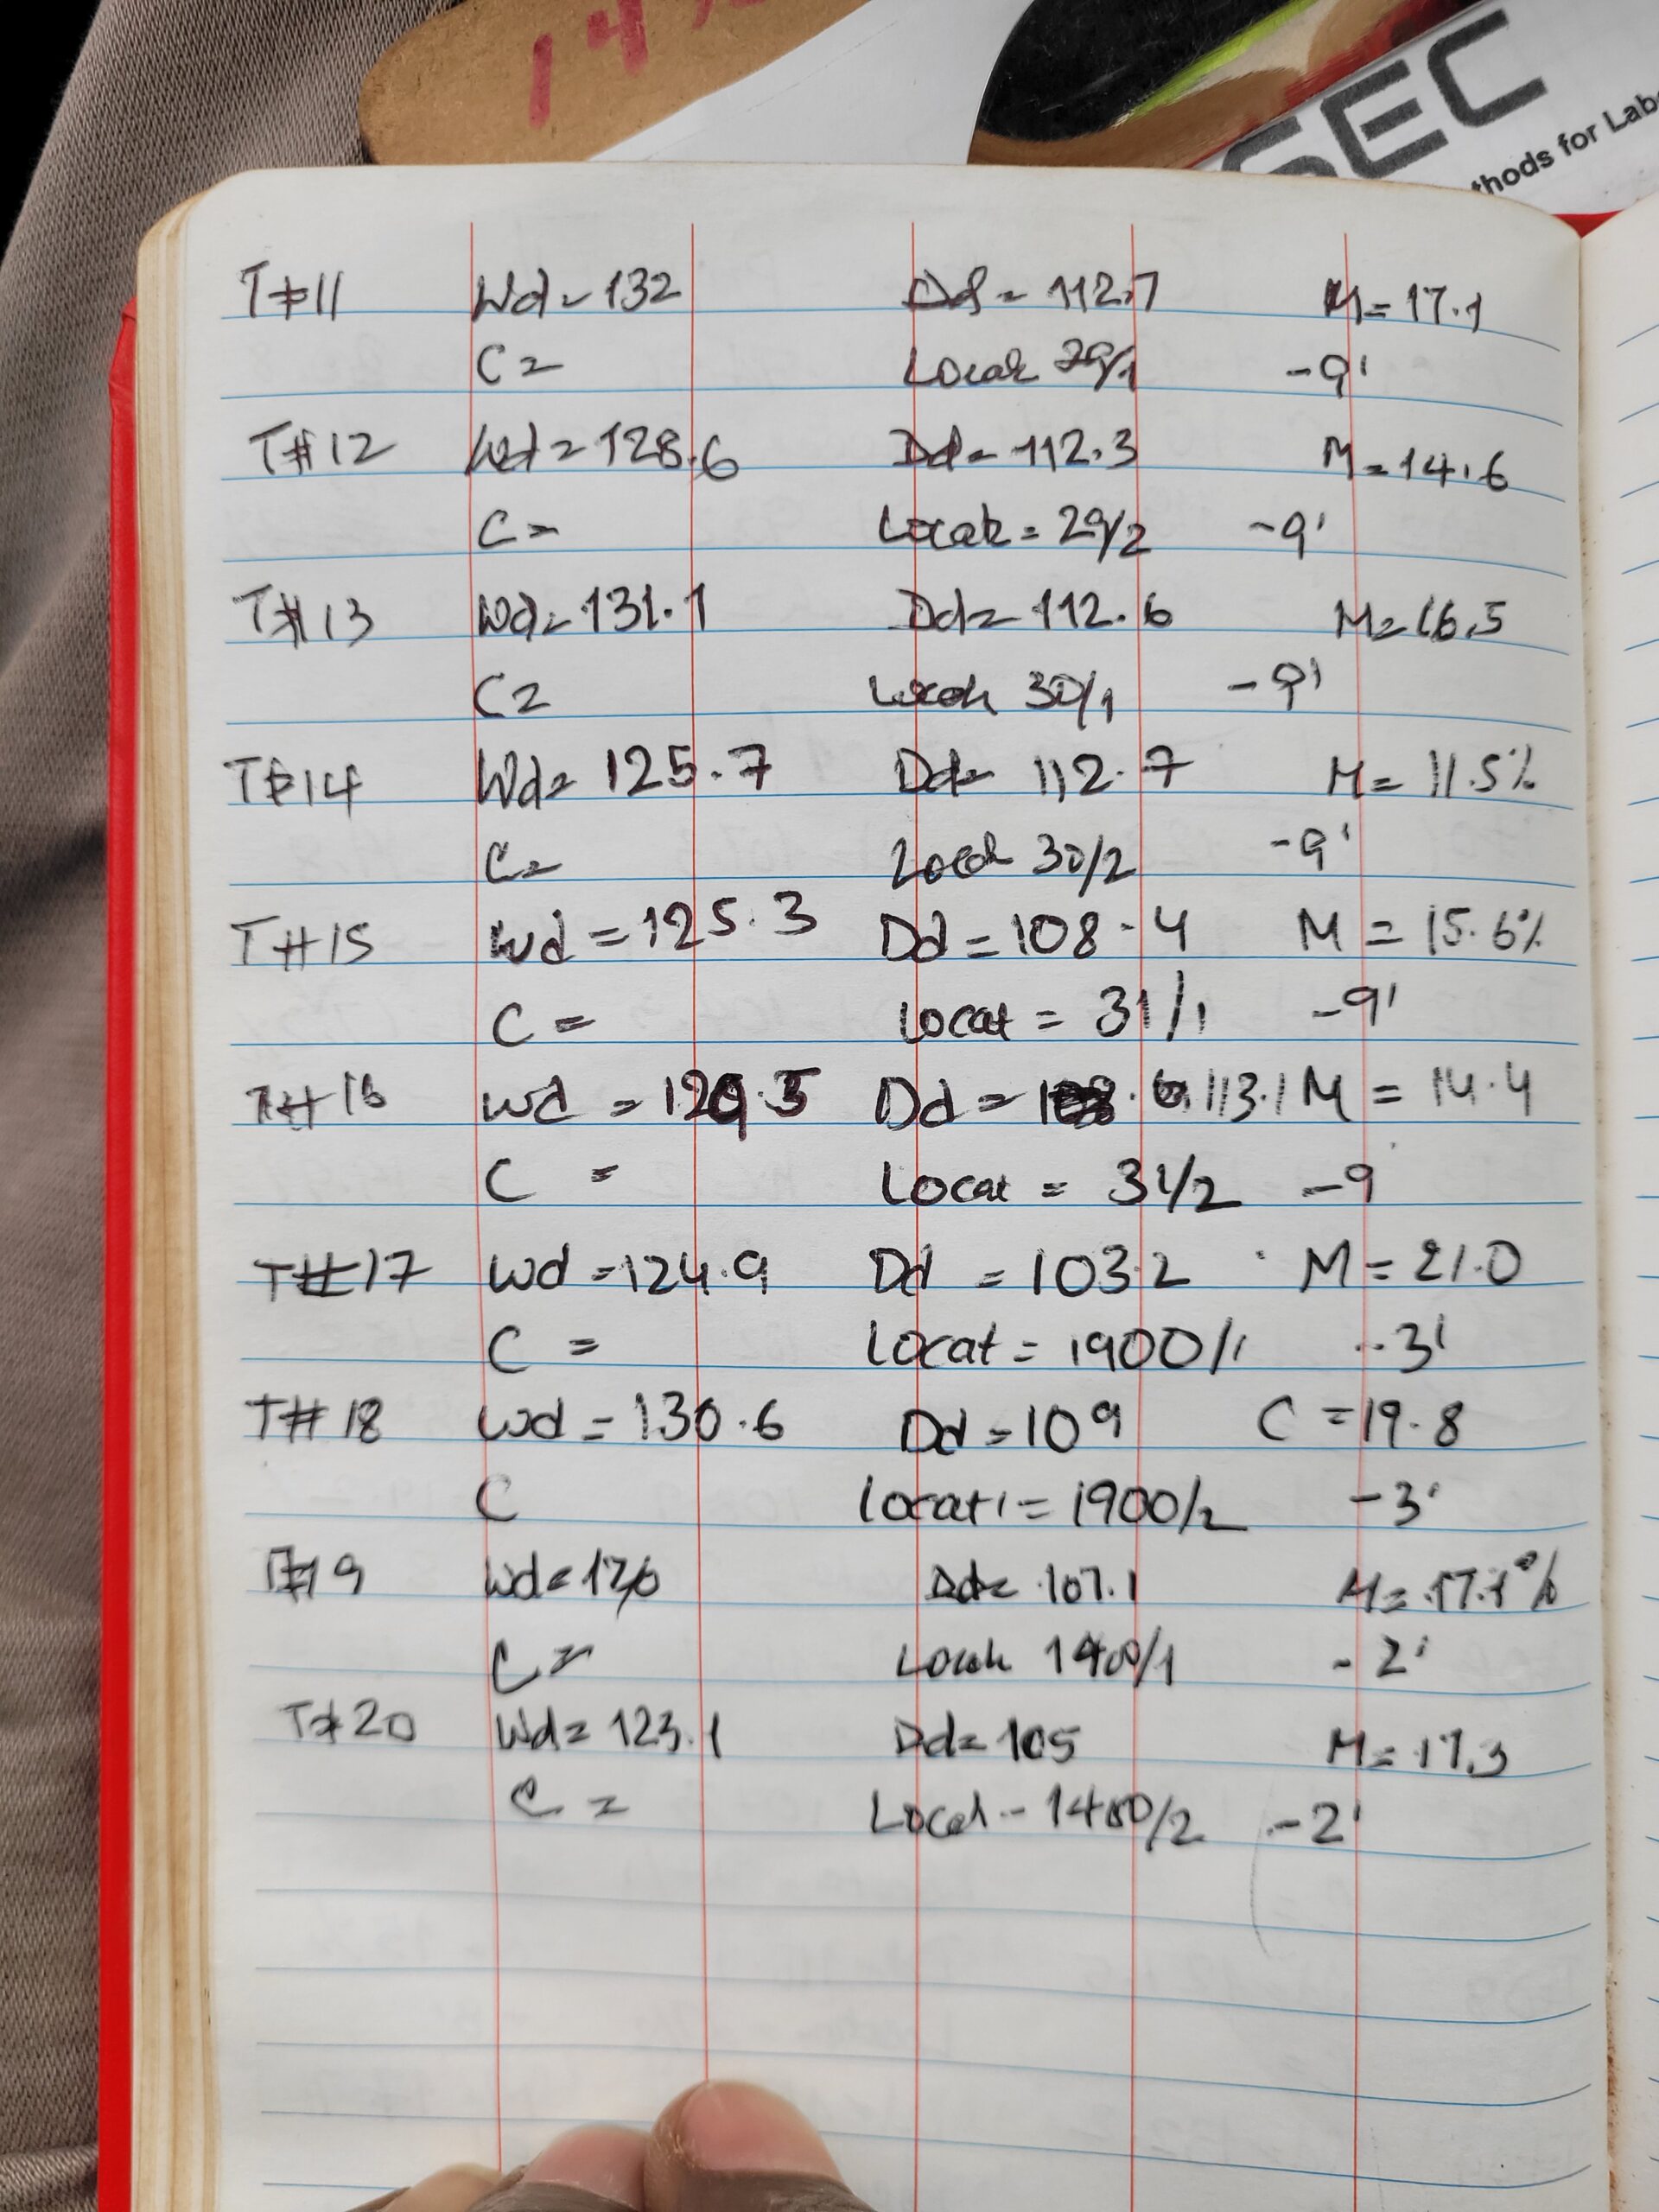 14
SEC
thods for Labo
T#11 Wd = 132 Dd = 112.7 M = 17.1
C = Locat 29/1 -9'
T#12 Wd = 128.6 Dd = 112.3 M = 14.6
C = Locat = 29/2 -9'
T#13 Wd = 131.1 Dd = 112.6 M = 16.5
C = Locat 30/1 -9'
T#14 Wd = 125.7 Dd = 112.7 M = 11.5%
C = Locat 30/2 -9'
T#15 Wd = 125.3 Dd = 108.4 M = 15.6%
C = Locat = 31/1 -9'
T#16 Wd = 129.3 Dd = 113.1 M = 14.4
C = Locat = 31/2 -9'
T#17 Wd = 124.9 Dd = 103.2 M = 21.0
C = Locat = 1900/1 -3'
T#18 Wd = 130.6 Dd = 109 C = 19.8
C Locati = 1900/2 -3'
T#19 Wd = Dd = 107.1 M = 17.1%
C = Locat 1400/1 -2'
T#20 Wd = 123.1 Dd = 105 M = 17.3
C = Locat - 1400/2 -2'